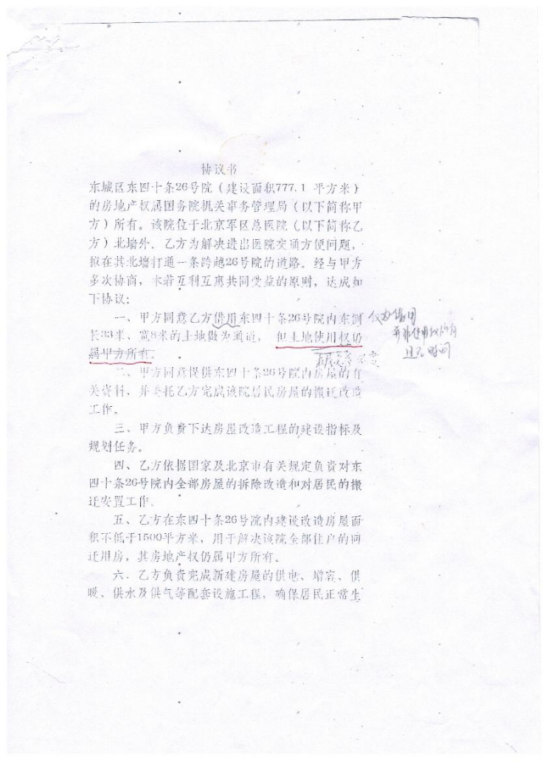 协议书
东城区东四十条26号院（建设面积777.1 平方米）
的房地产权属国务院机关事务管理局（以下简称甲
方）所有。该院位于北京军区总医院（以下简称乙
方）北墙外。乙方为解决进出医院交通方便问题，
拟在其北墙打通一条跨越26号院的道路。经与甲方
多次协商，本着互利互惠共同受益的原则，达成如
下协议：
一、甲方同意乙方借用东四十条26号院内东侧
长33米、宽8米的土地做为通道，但土地使用权仍
属甲方所有。
二、甲方同意提供东四十条26号院内房屋的有
关资料，并委托乙方完成该院居民房屋的搬迁改造
工作。
三、甲方负责下达房屋改造工程的建设指标及
规划任务。
四、乙方依据国家及北京市有关规定负责对东
四十条26号院内全部房屋的拆除改造和对居民的搬
迁安置工作。
五、乙方在东四十条26号院内建设改造房屋面
积不低于1500平方米，用于解决该院全部住户的回
迁用房，其房地产权仍属甲方所有。
六、乙方负责完成新建房屋的供电、增容、供
暖、供水及供气等配套设施工程，确保居民正常生